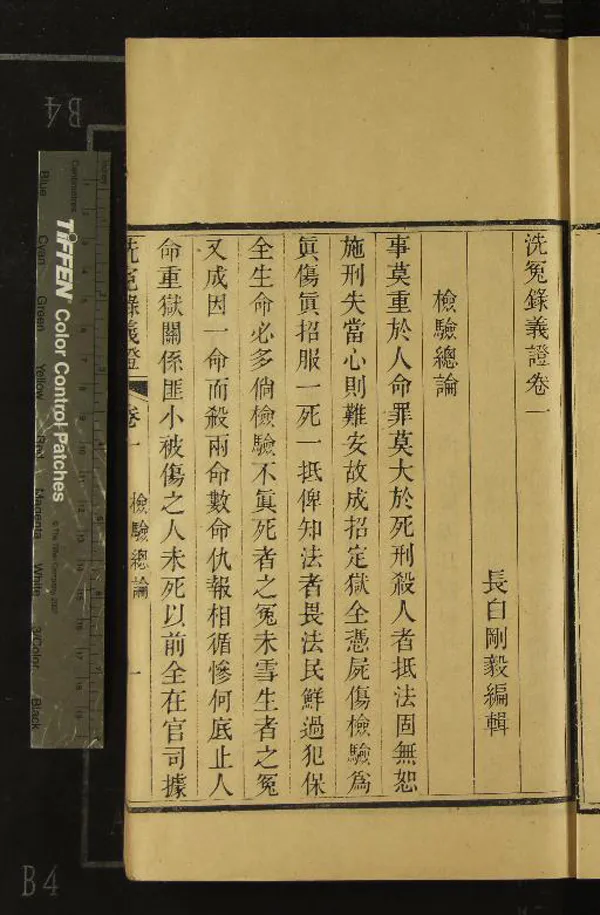 洗冤錄義證卷一
長白剛毅編輯
檢驗總論
事莫重於人命罪莫大於死刑殺人者抵法固無恕
施刑失當心則難安故成招定獄全憑屍傷檢驗為
眞傷眞招服一死一抵俾知法者畏法民鮮過犯保
全生命必多倘檢驗不眞死者之冤未雪生者之冤
又成因一命而殺兩命數命仇報相循慘何底止人
命重獄關係匪小被傷之人未死以前全在官司據
洗冤錄義證 卷一 檢驗總論 一
TIFFEN Color Control Patches
Blue Cyan Green Yellow Red Magenta White 3/Color Black
Centimetres
B4
B4